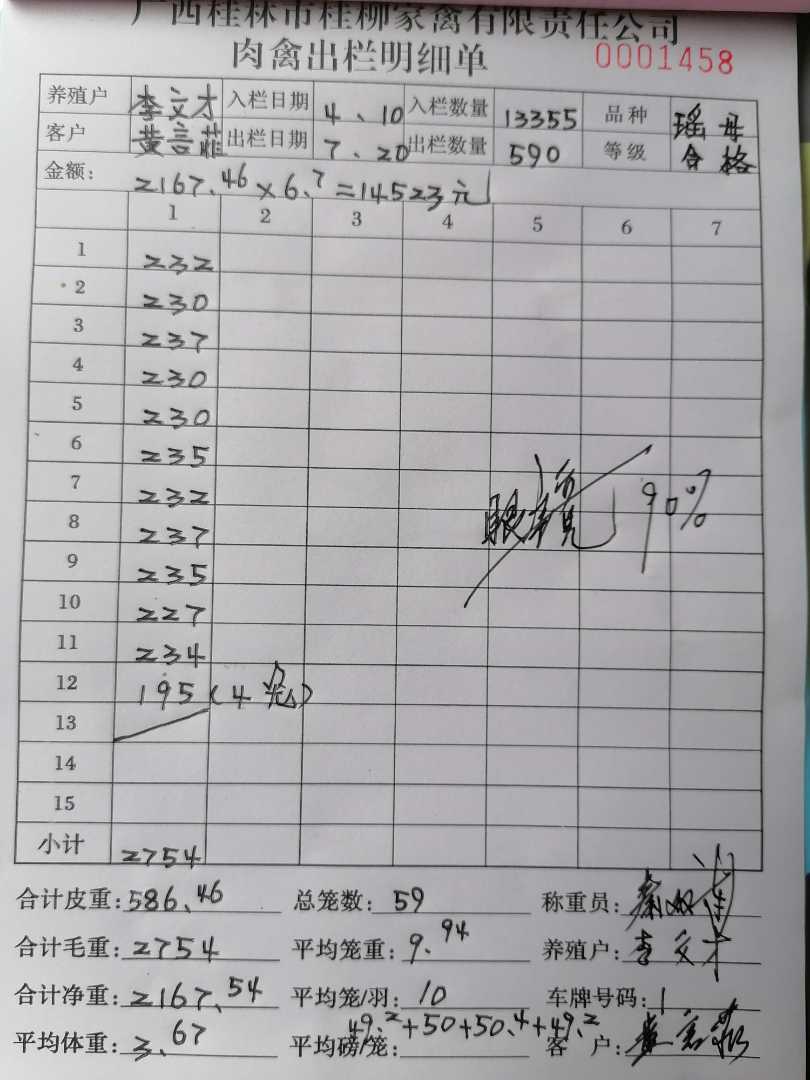 广西桂林市桂柳家禽有限责任公司
肉禽出栏明细单 0001458
养殖户 李文才 入栏日期 4、10 入栏数量 13355 品种 瑶母
客户 黄言菲 出栏日期 7、20 出栏数量 590 等级 合格
金额: 2167.46×6.7=14523元
1 2 3 4 5 6 7
1 232
2 230
3 237
4 230
5 230
6 235
7 232
8 237
9 235
10 227
11 234
12 195(4笼)
13
14
15
90%
小计 2754
合计皮重:586.46 总笼数:59 称重员:
合计毛重:2754 平均笼重:9.94 养殖户:李文才
合计净重:2167.54 平均笼/羽:10 车牌号码:
平均体重:3.67 平均磅/笼:49.2+50+50.4+49.2 客户:黄言菲